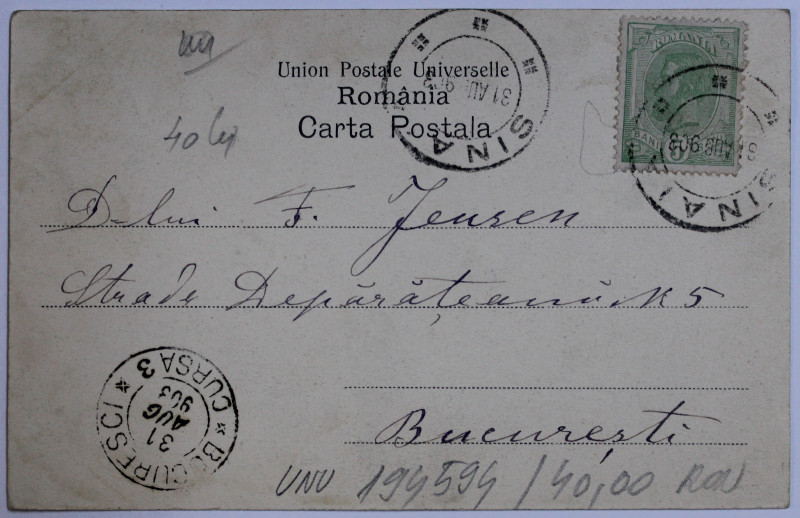 40 lei
Union Postale Universelle
România
Carta Postala
SINAIA
31 AUG 903
ROMANIA
5 BANI 5
SINAIA
31 AUG 903
D-lui F. Jensen
Strada Depărățeanu N 5
București
BUCURESCI
CURSA 3
31
AUG
903
UNU 194594 / 40,00 RON